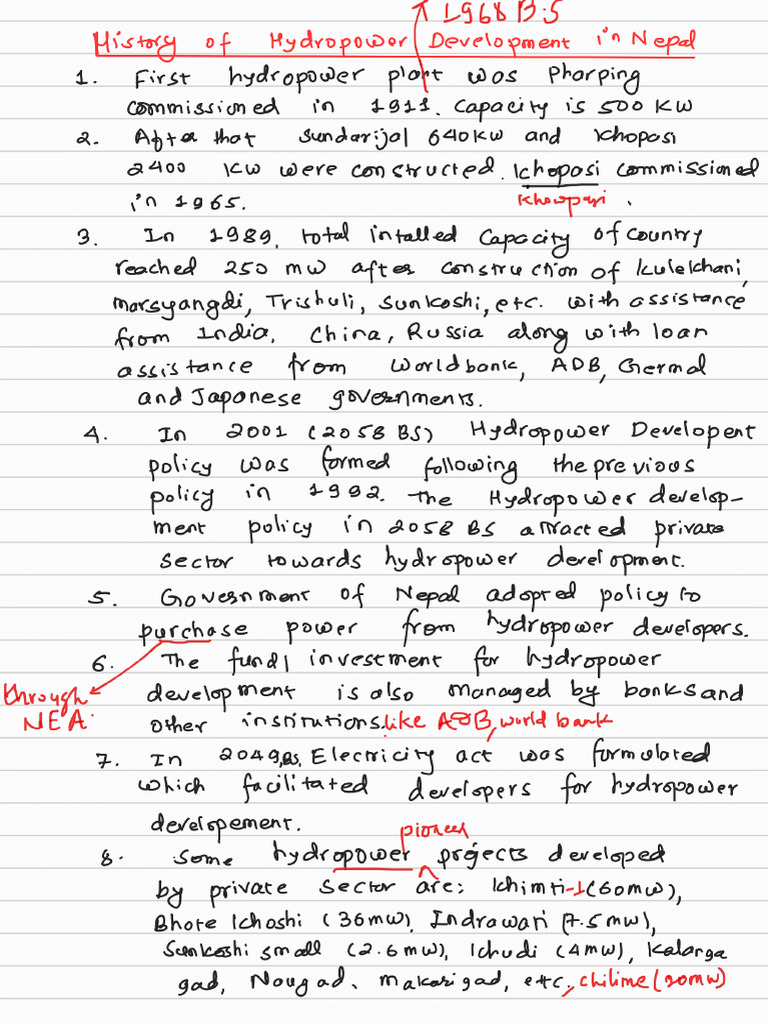 1968 B.S
History of Hydropower Development in Nepal
1. First hydropower plant was Pharping
commissioned in 1911. Capacity is 500 KW
2. After that Sundarijal 640KW and Khopasi
2400 KW were constructed. Khopasi commissioned
in 1965. Khowpasi .
3. In 1989, total intalled Capacity of country
reached 250 mw after construction of Kulekhani,
marsyangdi, Trishuli, Sunkoshi, etc. with assistance
from India, China, Russia along with loan
assistance from World bank, ADB, Germal
and Japanese governments.
4. In 2001 (2058 BS) Hydropower Developent
policy was formed following the previous
policy in 1992. The Hydropower develop-
ment policy in 2058 BS attracted private
sector towards hydropower development.
5. Government of Nepal adopted policy to
purchase power from hydropower developers.
6. The fund/investment for hydropower
through development is also managed by banks and
NEA. other institutions.like ADB, world bank
7. In 2049,BS, Electricity act was formulated
which facilitated developers for hydropower
developement.
pioneer
8. Some hydropower projects developed
by private sector are: Khimti-1(60mw),
Bhote Khoshi (36mw), Indrawati (7.5mw),
Sunkoshi small (2.6mw), Khudi (4mw), Kalanga
gad, Nougad, makarigad, etc., chilime(20mw)